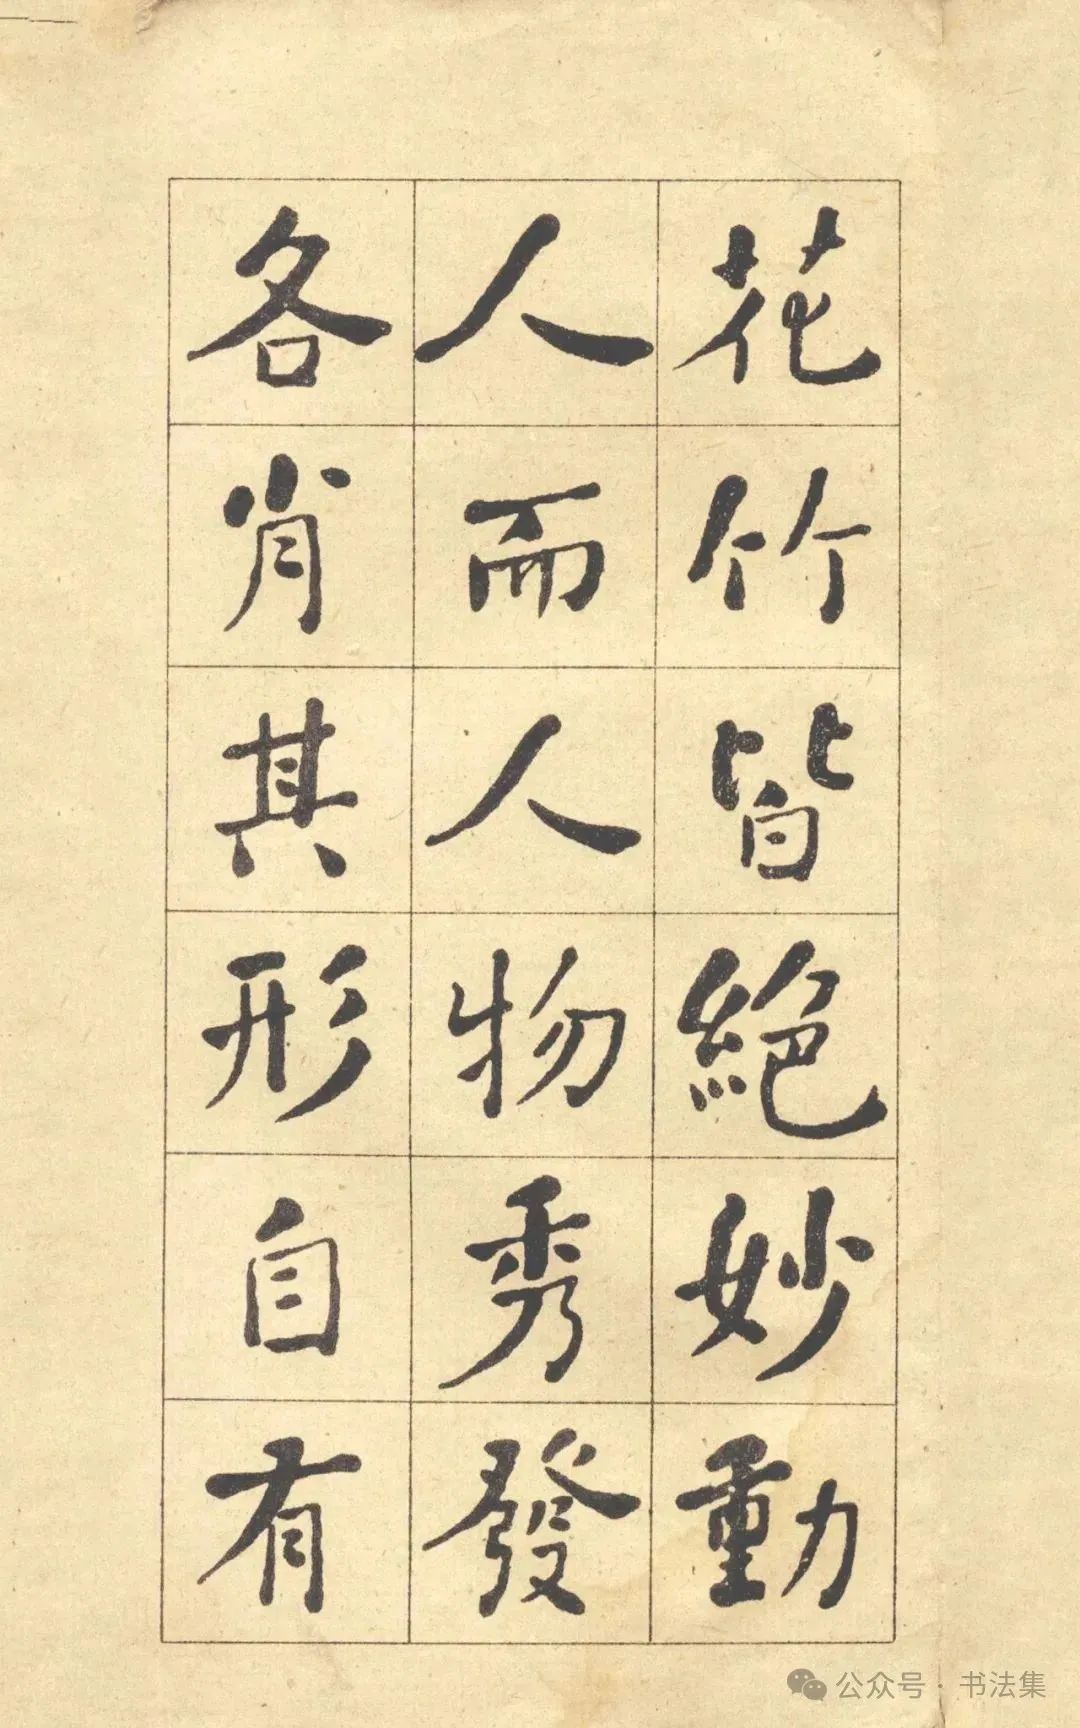 花竹皆絕妙動
人而人物秀發
各肖其形自有
公众号·书法集